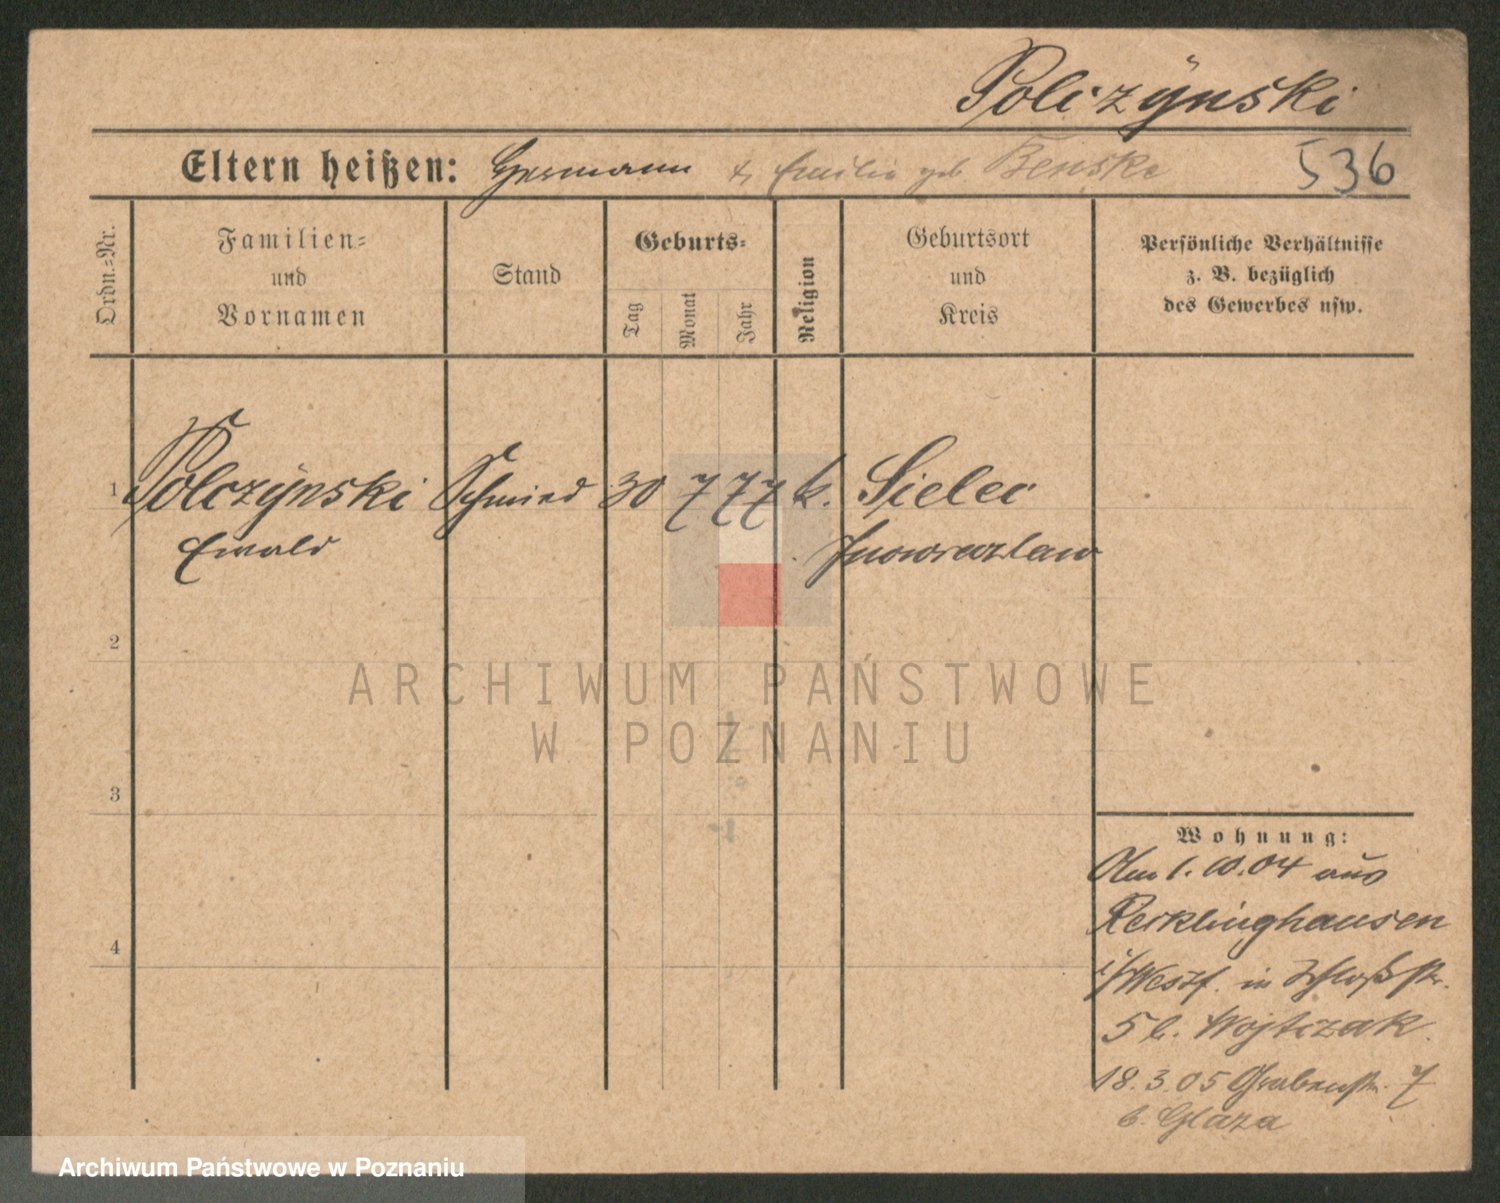 Polczÿnski
Eltern heißen: Hermann & Emilie geb Benske 536
Ordn.=Nr.
Familien=
und
Vornamen
Stand
Geburts=
Tag
Monat
Jahr
Religion
Geburtsort
und
Kreis
Persönliche Verhältnisse
z. B. bezüglich
des Gewerbes usw.
1 Polczÿnski Schmied 30 7 77 k. Sielec
Ewald Inowrazlaw
2
ARCHIWUM PAŃSTWOWE
W POZNANIU
3
Wohnung:
Am 1.10.04 aus
Recklinghausen
i/Westf. in Schloßstr.
4
5 b. Wojtczak.
18.3.05 Grabenstr. 7
b. Glaza
Archiwum Państwowe w Poznaniu